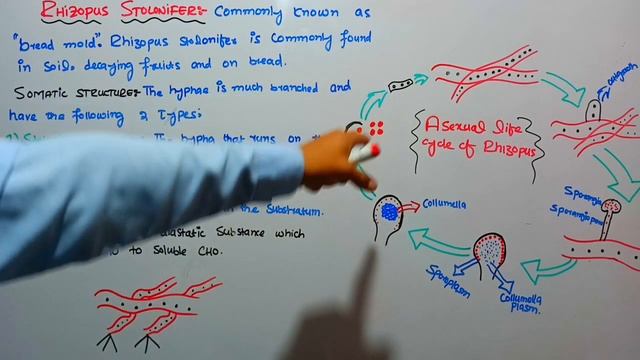 RHIZOPUS STOLONIFER:- Commonly known as
"bread mold". Rhizopus stolonifer is commonly found
in soil, decaying fruits and on bread.
SOMATIC STRUCTURE:- The hyphae is much branched and
have the following 3 Types:
The hypha that runs on
in the Substratum.
diastatic Substance which
to Soluble CHO.
Asexual life
cycle of Rhizopus
Columella
Sporangiu
Sporangiopho
Sporoplasm
Columella
Plasm.